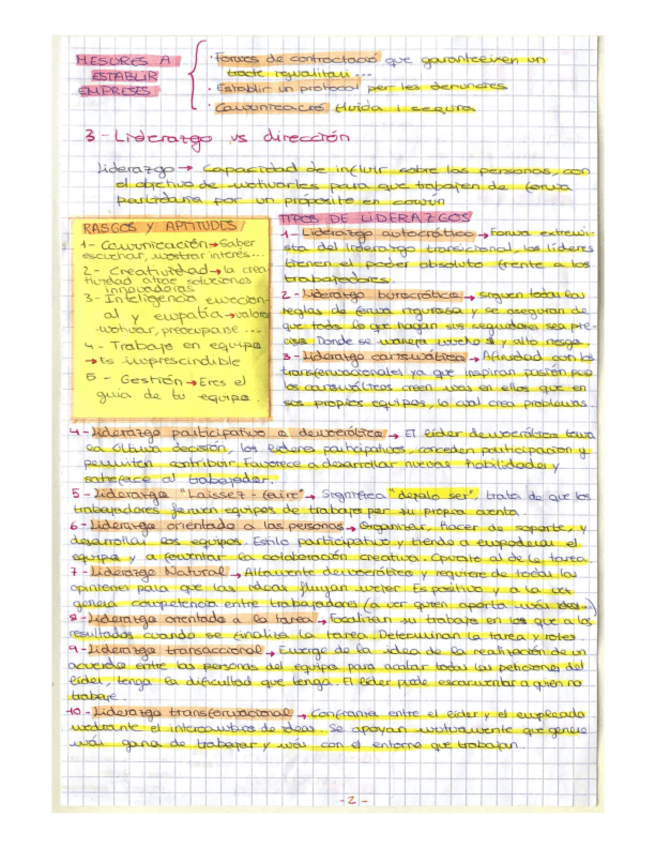 MESURES A
ESTABLIR
EMPRESES
· Formes de contractació que garanteixen un
tracte igualitari ...
· Establir un protocol per les denuncies
· Comunicació fluida i segura
3 - Liderazgo vs dirección
Liderazgo → Capacidad de influir sobre las personas, con
el objetivo de motivarles para que trabajen de forma
por un propósito en común
RASGOS Y APTITUDES
1 - Comunicación → Saber
escuchar, mostrar interés...
2 - Creatividad → la crea
tividad atrae soluciones
innovadoras
3 - Inteligencia emocion-
al y empatía → valorar
motivar, preocuparse ...
4 - Trabajo en equipo
→ Es imprescindible
5 - Gestión → Eres el
guía de tu equipo.
TIPOS DE LIDERAZGOS
1 - Liderazgo autocrático → Forma extremi-
sta del liderazgo transicional, los líderes
tienen el poder absoluto frente a los
trabajadores.
2 - Liderazgo burocrático → siguen todas las
reglas de forma rigurosa y se aseguran de
que todo lo que hagan sus seguidores sea pre-
ciso. Donde se maneja mucho $ y alto riesgo.
3 - Liderazgo carismático → Afinidad con los
transformacionales ya que inspiran pasión pero
los carismáticos creen más en ellos que en
sus propios equipos, lo cual crea problemas.
4 - Liderazgo participativo o democrático → El líder democrático toma
la última decisión, los líderes participativos, conceden participación y
permiten contribuir. Favorece a desarrollar nuevas habilidades y
satisface al trabajador.
5 - Liderazgo "Laissez - faire" → Significa "dejalo ser", trata de que los
trabajadores formen equipos de trabajo por su propia cuenta.
6 - Liderazgo orientado a las personas → Organizar, Hacer de soporte, y
desarrollar los equipos. Estilo participativo y tiende a empoderar el
equipo y a fomentar la colaboración creativa. Opuesto al de la tarea.
7 - Liderazgo Natural → Altamente democrático y requiere de todas las
opiniones para que las ideas fluyan mejor. Es positivo y a la vez
genera competencia entre trabajadores (a ver quien aporta más ideas...)
8 - Liderazgo orientado a la tarea → Focalizan su trabajo en los que a los
resultados cuando se finaliza la tarea. Determinan la tarea y roles
9 - Liderazgo transaccional → Emerge de la idea de la realización de un
acuerdo entre las personas del equipo para acatar todas las peticiones del
líder, tenga la dificultad que tenga. El líder puede escarmentar a quien no
trabaje.
10 - Liderazgo transformacional → Confianza entre el líder y el empleado
mediante el intercambio de ideas. Se apoyan mutuamente que genere
más gana de trabajar y más con el entorno que trabajan.
- 2 -